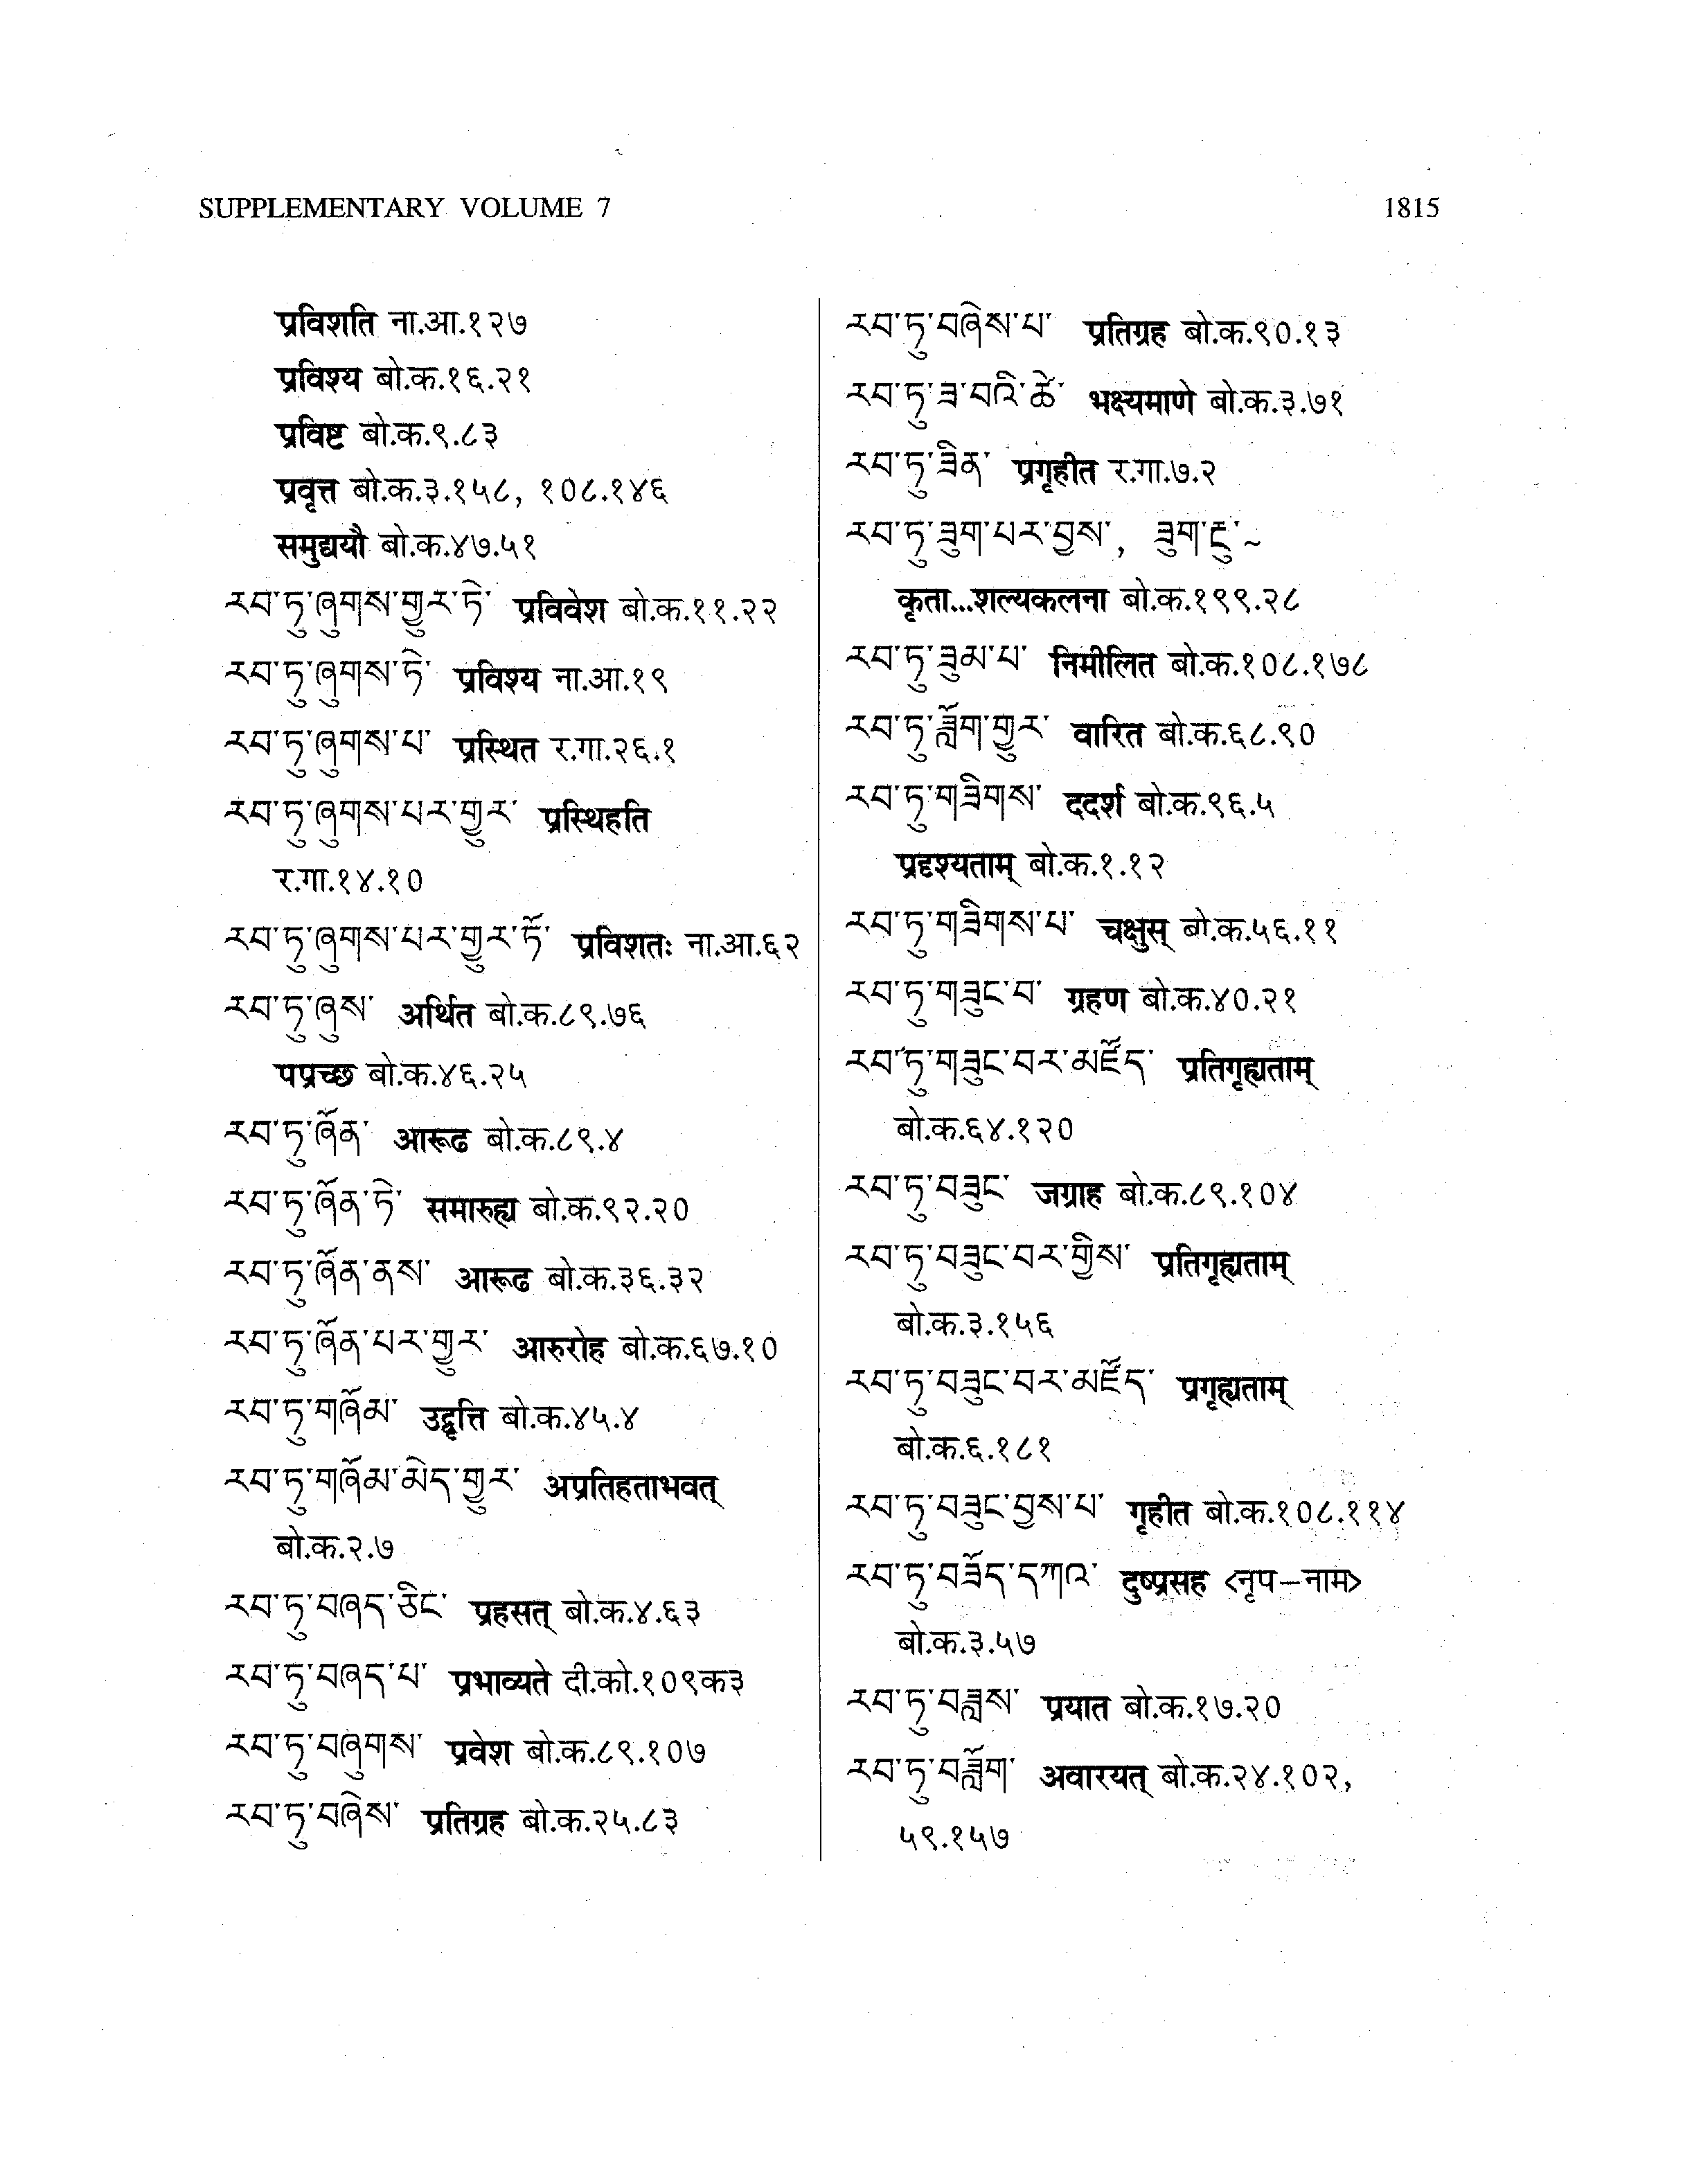 SUPPLEMENTARY VOLUME 7
1815
प्रविशति ना.आ.१२७
प्रविश्य बो.क.१६.२१
प्रविष्ट बो.क.९.८३
प्रवृत्त बो.क.३.१५८, १०८.१४६
समुद्ययौ बो.क.४७.५१
རབ་ཏུ་ཞུགས་གྱུར་ཏེ་ प्रविवेश बो.क.११.२२
རབ་ཏུ་ཞུགས་ཏེ་ प्रविश्य ना.आ.१९
རབ་ཏུ་ཞུགས་པ་ प्रस्थित र.गा.२६.१
རབ་ཏུ་ཞུགས་པར་གྱུར་ प्रस्थिहति
र.गा.१४.१०
རབ་ཏུ་ཞུགས་པར་གྱུར་ཏོ་ प्रविशतः ना.आ.६२
རབ་ཏུ་ཞུས་ अर्थित बो.क.८९.७६
पप्रच्छ बो.क.४६.२५
རབ་ཏུ་ཞོན་ आरूढ बो.क.८९.४
རབ་ཏུ་ཞོན་ཏེ་ समारुह्य बो.क.९२.२०
རབ་ཏུ་ཞོན་ནས་ आरूढ बो.क.३६.३२
རབ་ཏུ་ཞོན་པར་གྱུར་ आरुरोह बो.क.६७.१०
རབ་ཏུ་གཞོམ་ उद्वृत्ति बो.क.४५.४
རབ་ཏུ་གཞོམ་མེད་གྱུར་ अप्रतिहताभवत्
बो.क.२.७
རབ་ཏུ་བཞད་ཅིང་ प्रहसत् बो.क.४.६३
རབ་ཏུ་བཞད་པ་ प्रभाव्यते दी.को.१०९क३
རབ་ཏུ་བཞུགས་ प्रवेश बो.क.८९.१०७
རབ་ཏུ་བཞེས་ प्रतिग्रह बो.क.२५.८३
རབ་ཏུ་བཞེས་པ་ प्रतिग्रह बो.क.९०.१३
རབ་ཏུ་ཟ་བའི་ཚེ་ भक्ष्यमाणे बो.क.३.७१
རབ་ཏུ་ཟིན་ प्रगृहीत र.गा.७.२
རབ་ཏུ་ཟུག་པར་བྱས་, ཟུག་རྔུ་~
कृता...शल्यकलना बो.क.१९९.२८
རབ་ཏུ་ཟུམ་པ་ निमीलित बो.क.१०८.१७८
རབ་ཏུ་ཟློག་གྱུར་ वारित बो.क.६८.९०
རབ་ཏུ་གཟིགས་ ददर्श बो.क.९६.५
प्रदृश्यताम् बो.क.१.१२
རབ་ཏུ་གཟིགས་པ་ चक्षुस् बो.क.५६.११
རབ་ཏུ་གཟུང་བ་ ग्रहण बो.क.४०.२१
རབ་ཏུ་གཟུང་བར་མཛོད་ प्रतिगृह्यताम्
बो.क.६४.१२०
རབ་ཏུ་བཟུང་ जग्राह बो.क.८९.१०४
རབ་ཏུ་བཟུང་བར་གྱིས་ प्रतिगृह्यताम्
बो.क.३.१५६
རབ་ཏུ་བཟུང་བར་མཛོད་ प्रगृह्यताम्
बो.क.६.१८१
རབ་ཏུ་བཟུང་བྱས་པ་ गृहीत बो.क.१०८.११४
རབ་ཏུ་བཟོད་དཀའ་ दुष्प्रसह <नृप-नाम>
बो.क.३.५७
རབ་ཏུ་བཟླས་ प्रयात बो.क.१७.२०
རབ་ཏུ་བཟློག་ अवारयत् बो.क.२४.१०२,
५९.१५७